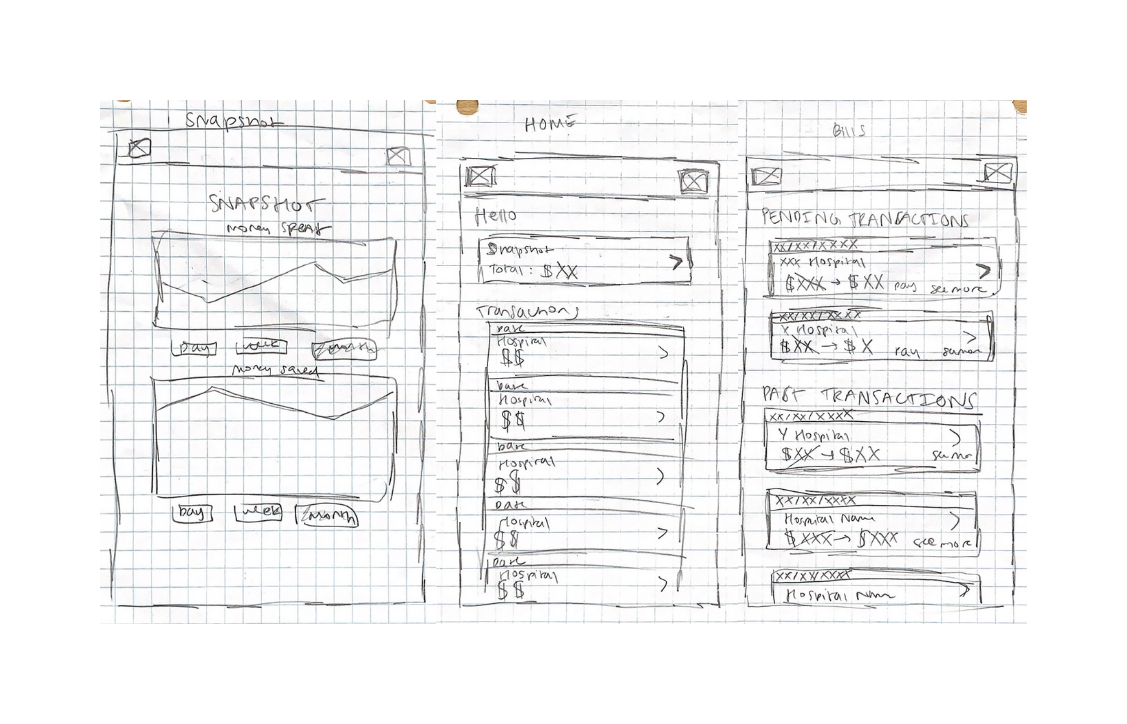 Snapshot
SNAPSHOT
money spent
day week month
money saved
day week month
HOME
Hello
Snapshot
Total: $XX
Transactions
Date
Hospital
$$
Date
Hospital
$$
Date
Hospital
$$
Date
Hospital
$$
Date
Hospital
$$
BILLS
PENDING TRANSACTIONS
XX/XX/XXXX
XXX Hospital
$XXX → $XX pay see more
XX/XX/XXXX
Y Hospital
$XX → $X pay see more
PAST TRANSACTIONS
XX/XX/XXXX
Y Hospital
$XX → $XX see more
XX/XX/XXXX
Hospital Name
$XXX → $XXX see more
XX/XX/XXXX
Hospital Name